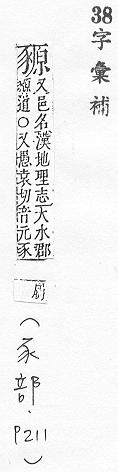 38字彙補
豲
又邑名漢地理志天水郡
豲道〇又愚袁切音元豕
屬
(豕部,P211)